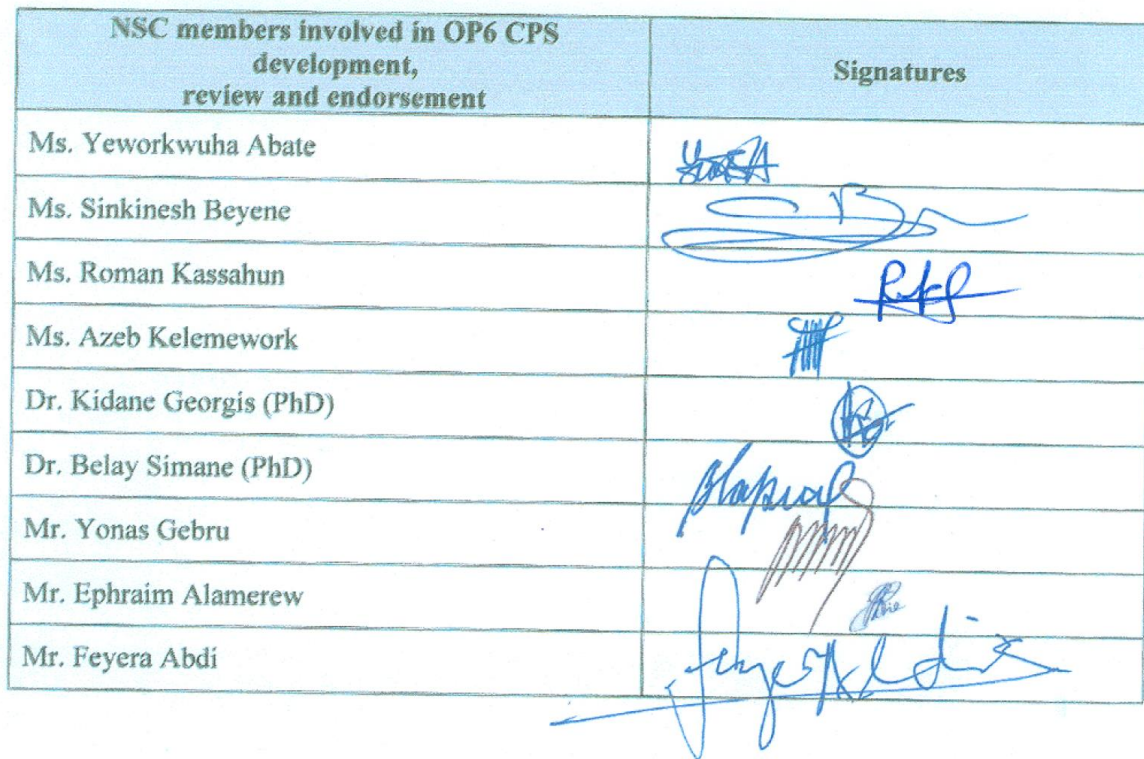 NSC members involved in OP6 CPS
development,
review and endorsement
Signatures
Ms. Yeworkwuha Abate
Ms. Sinkinesh Beyene
Ms. Roman Kassahun
Ms. Azeb Kelemework
Dr. Kidane Georgis (PhD)
Dr. Belay Simane (PhD)
Mr. Yonas Gebru
Mr. Ephraim Alamerew
Mr. Feyera Abdi